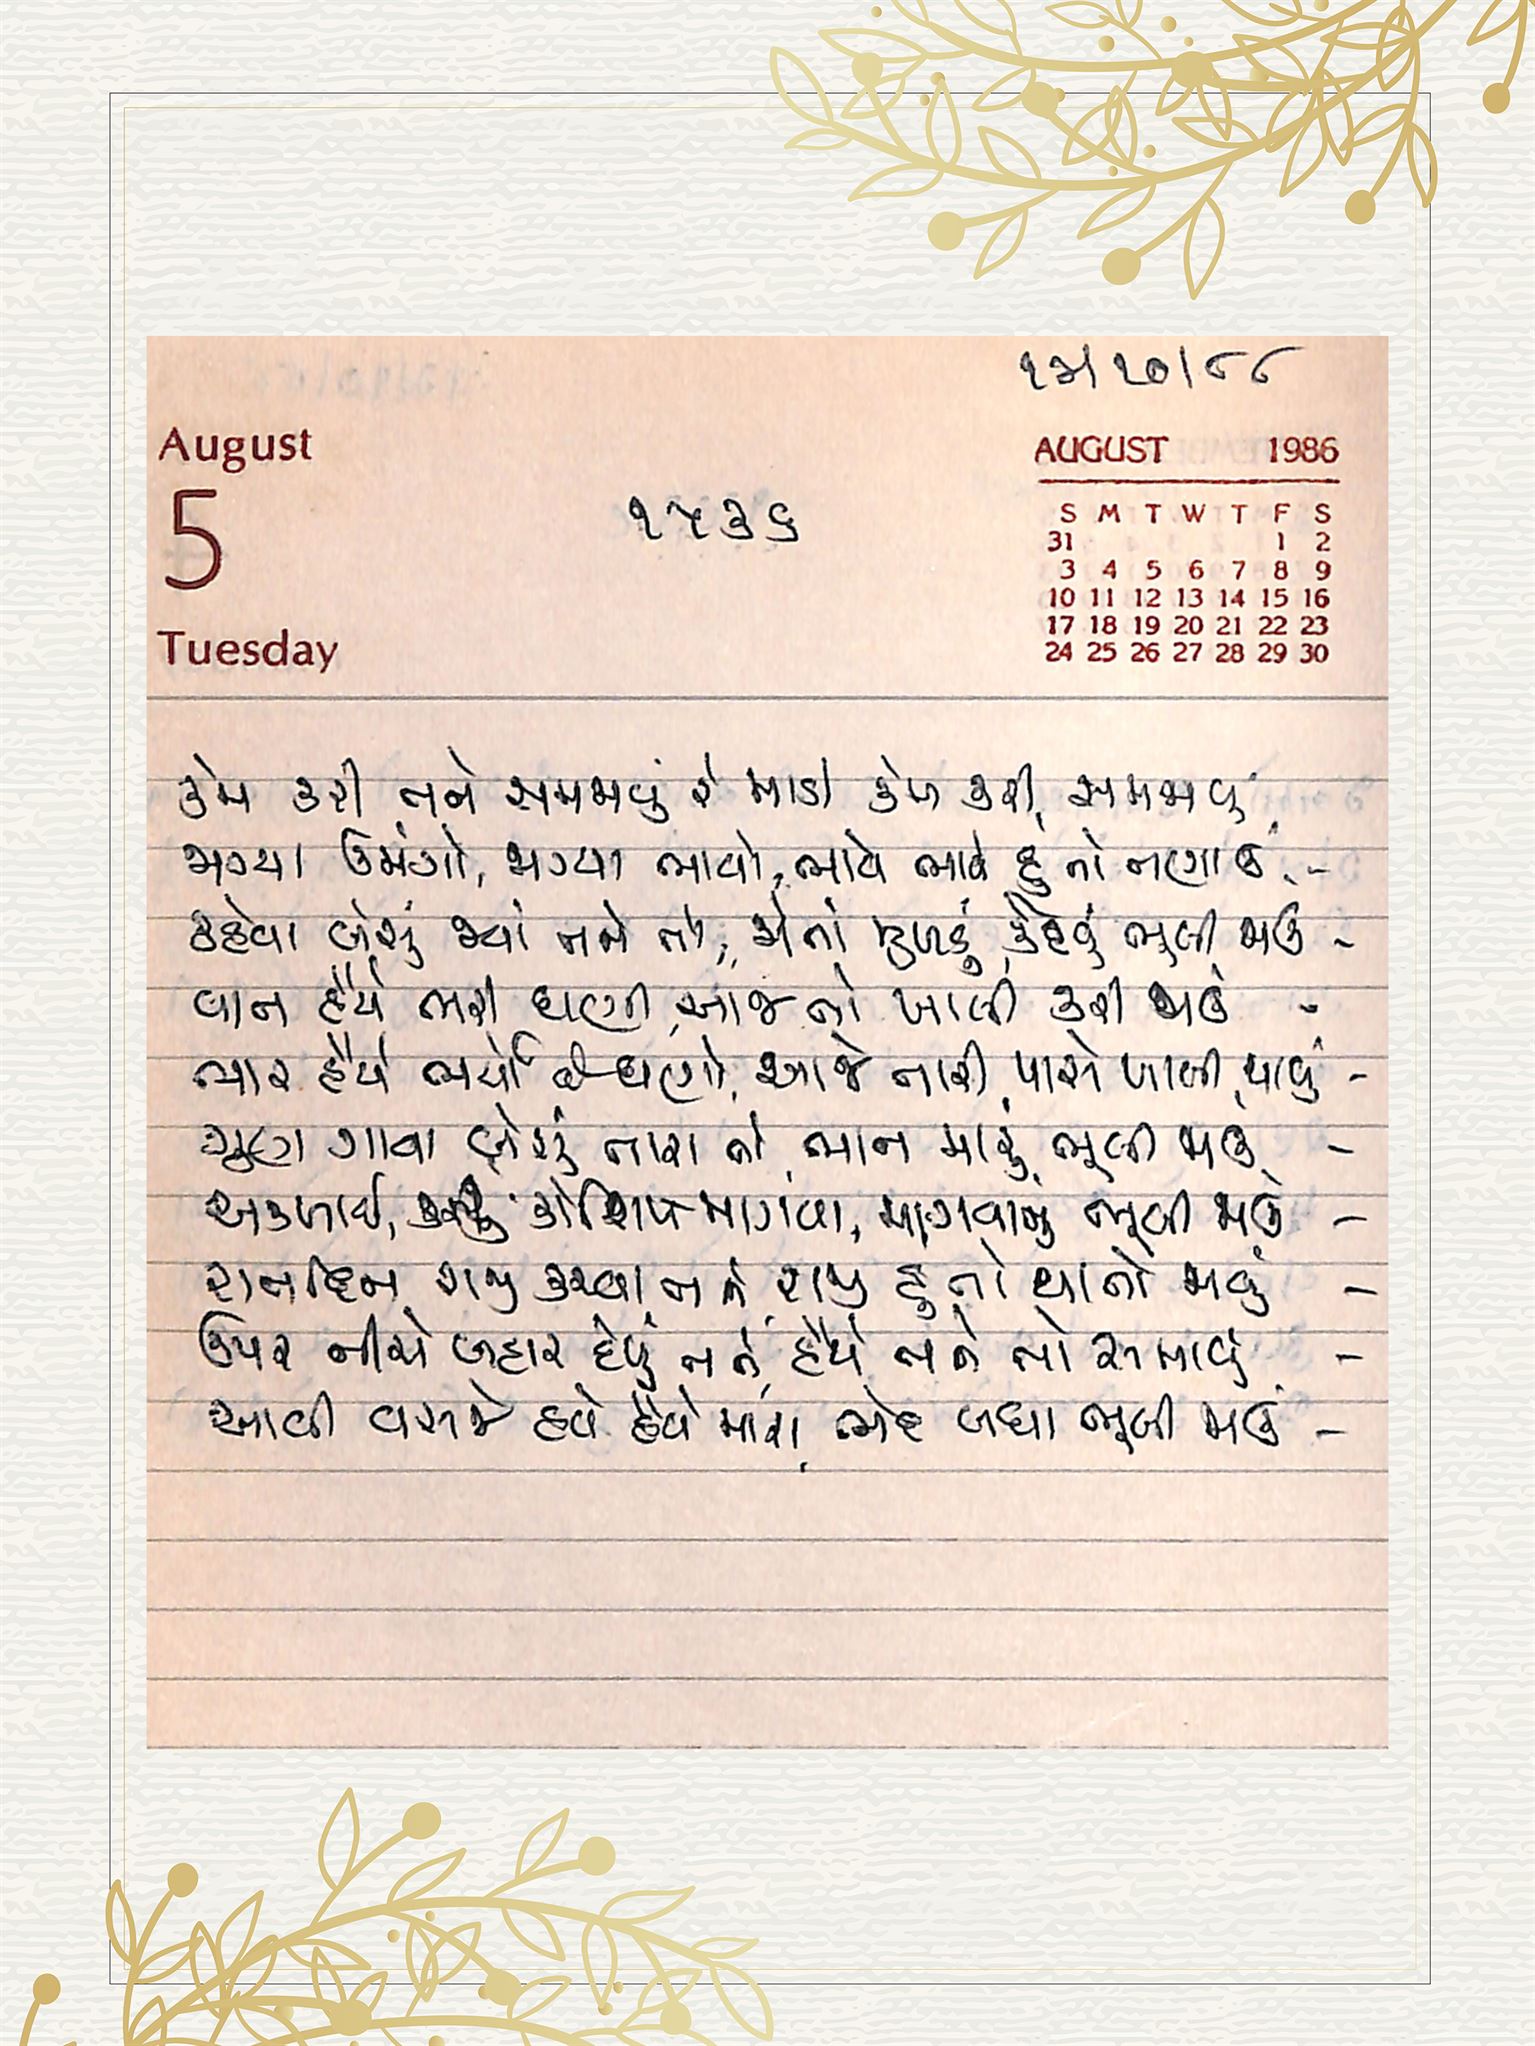 ૧૩/૧૦/૮૮
August
5
Tuesday
૧૫૩૬
AUGUST 1986
S M T W T F S
31 1 2
3 4 5 6 7 8 9
10 11 12 13 14 15 16
17 18 19 20 21 22 23
24 25 26 27 28 29 30
કેમ કરી તને સમજાવું રે માડી કેમ કરી સમજાવું
જાગ્યા ઉમંગો, જાગ્યા ભાવો, ભાવે ભાવે હું તો તણાઉં -
કહેવા બેસું જ્યાં તને તો, મેતાં મુખડું કહેવું ભૂલી જાઉં -
વાત હૈયે ભરી ઘણી આજ તો ખાલી કરી જાઉં -
ભાર હૈયે ભર્યો છે ઘણો, આજે તારી પાસે ખાલી થાવું -
ગુણ ગાવા બેસું તારા તો, ભાન મારું ભૂલી જાઉં -
અકળાઈ, કોશિષ માગવા, માગવાનું ભૂલી જાઉં -
રાતદિન રાજી કરવા તને, રાજી હું તો થાતો જાવું -
ઉપર નીચે બહાર દેખું તને, હૈયે તને તો સમાવું -
આવી વસજે હવે હૈયે મારા, ભેદ બધા ભૂલી જાઉં -